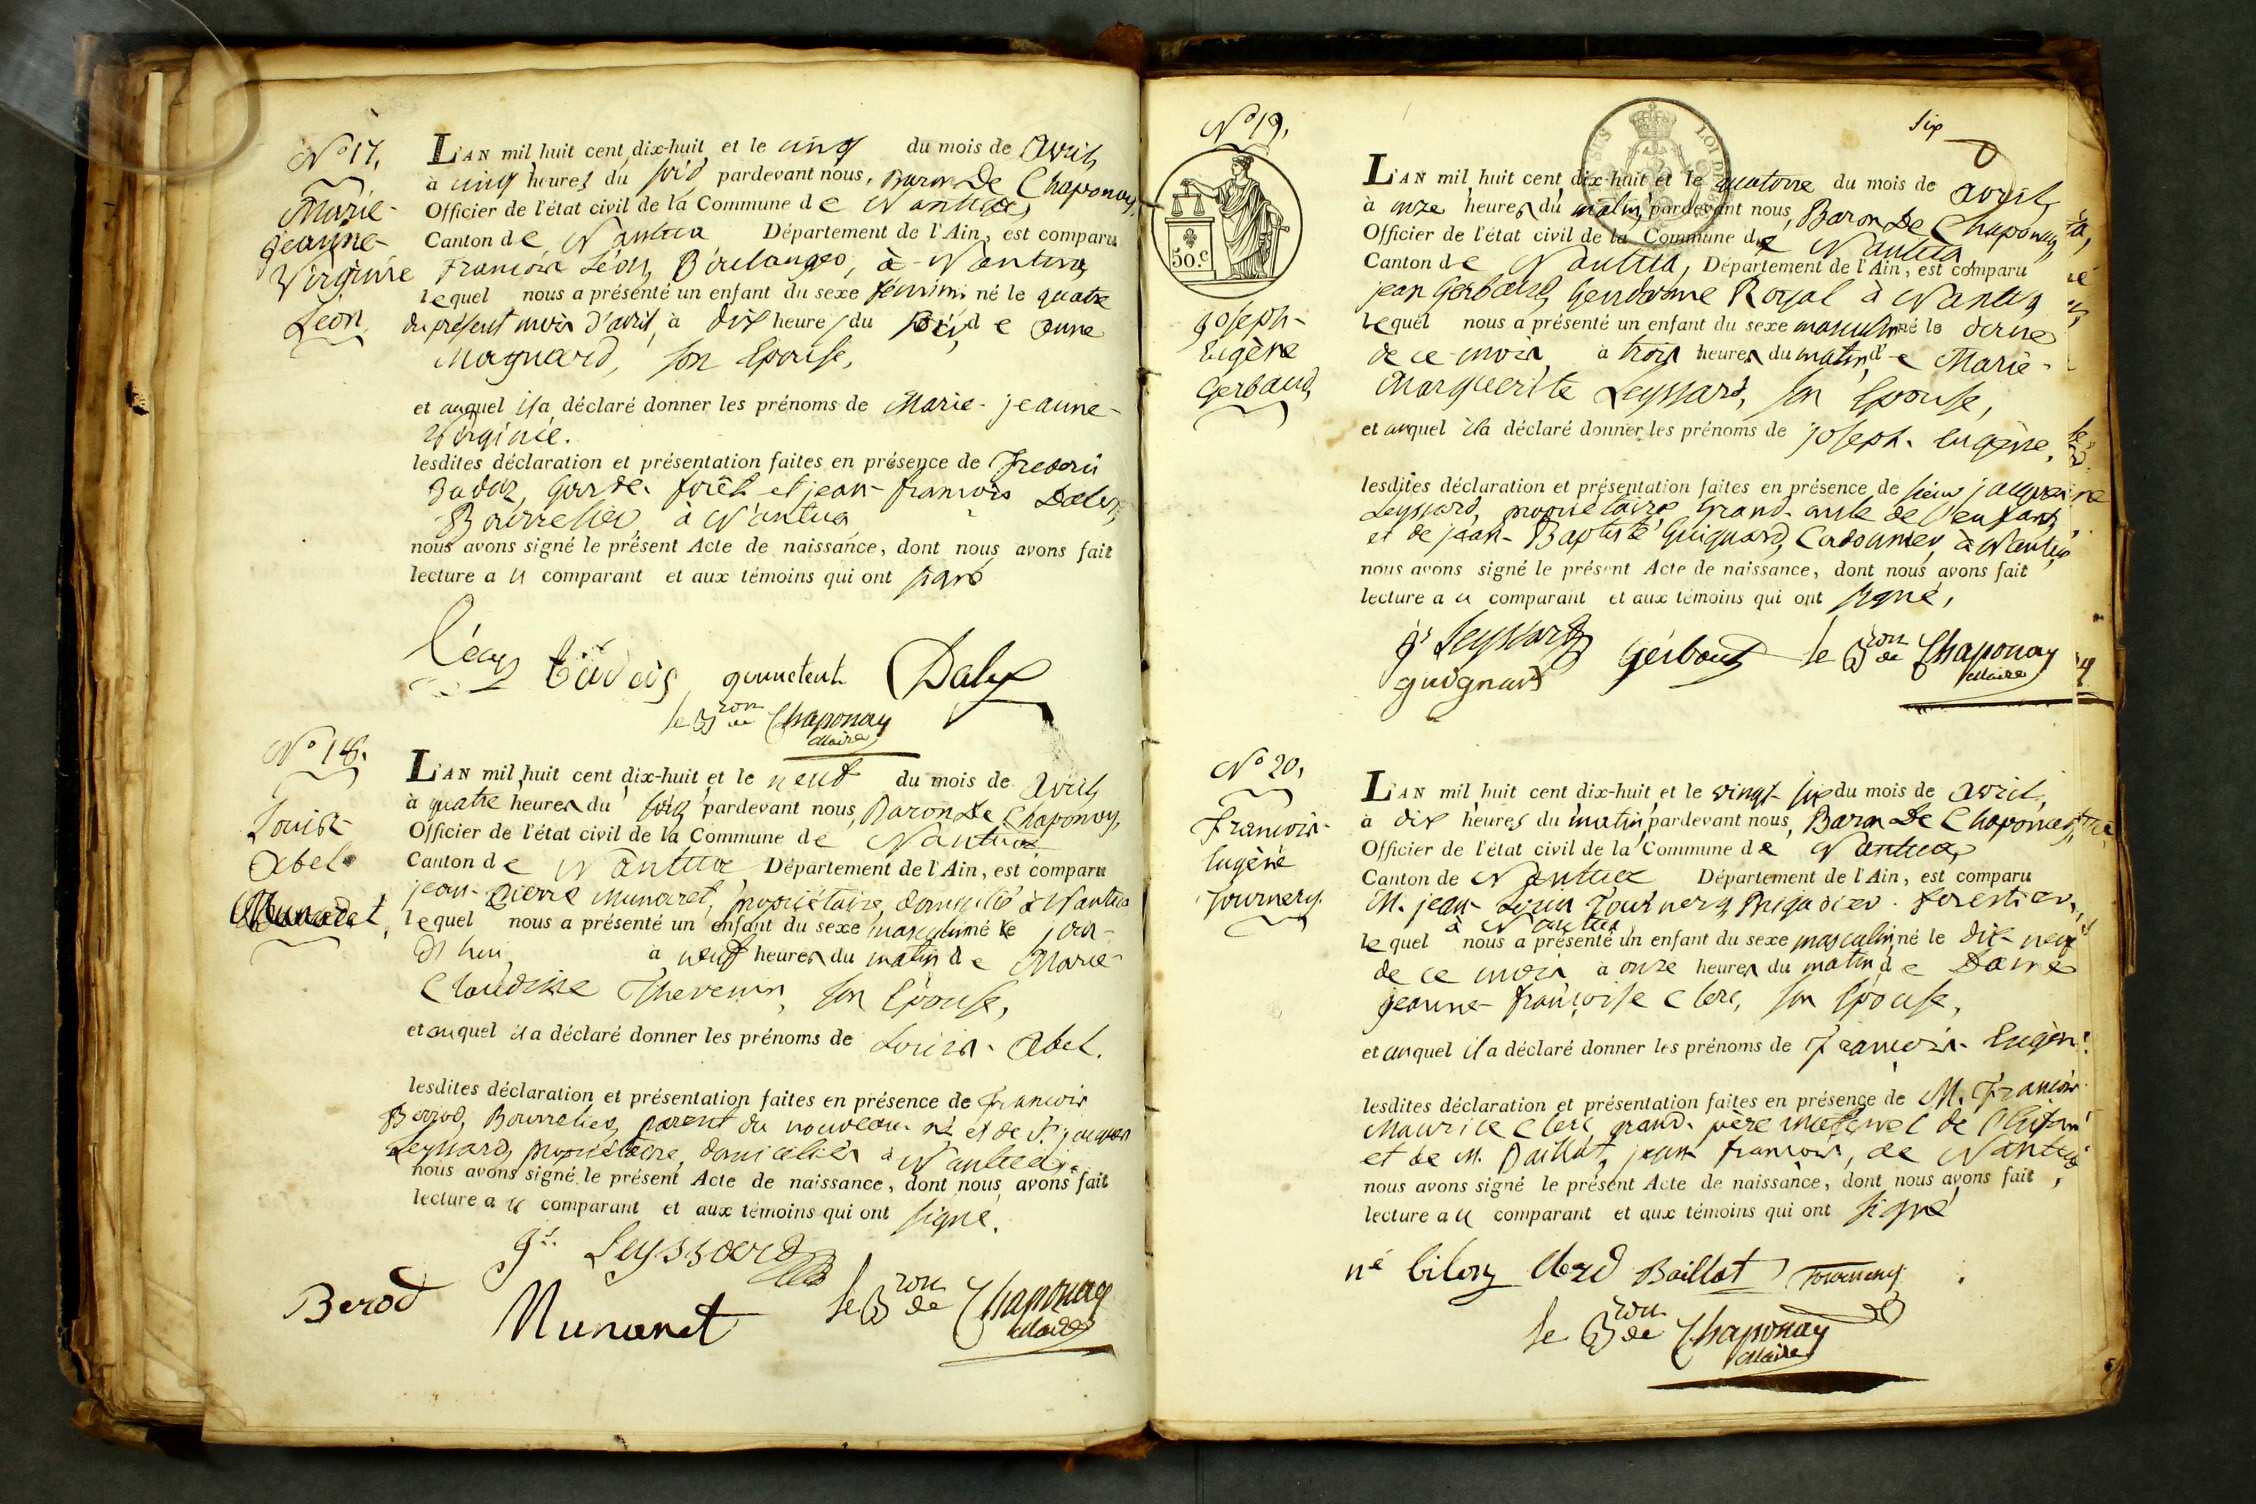 N° 17.
Marie-
jeanne-
Virginie
Léon
L'AN mil huit cent dix-huit et le cinq du mois de avril,
à cinq heures du soir pardevant nous, Baron De Chaponay,
Officier de l'état civil de la Commune de Nantua,
Canton de Nantua Département de l'Ain, est comparu
François Léon, Boulanger, à Nantua,
lequel nous a présenté un enfant du sexe féminin né le quatre
du présent mois d'avril, à dix heures du soir, de anne
Magnard, son Epouse,
et auquel il a déclaré donner les prénoms de Marie-jeanne-
Virginie.
lesdites déclaration et présentation faites en présence de
garde forêt et jean-françois
Bourrelier à Nantua
nous avons signé le présent Acte de naissance, dont nous avons fait
lecture au comparant et aux témoins qui ont signé
Léon Dalex
le Bron de Chaponay
Maire
N° 18.
Louis-
abel
L'AN mil huit cent dix-huit et le neuf du mois de avril,
à quatre heures du soir pardevant nous, Baron De Chaponay,
Officier de l'état civil de la Commune de Nantua
Canton de Nantua Département de l'Ain, est comparu
jean-Pierre Munaret, propriétaire, domicilié à Nantua
lequel nous a présenté un enfant du sexe masculin né le jour-
d'hui, à neuf heures du matin de Marie-
Claudine Thevenin, son Epouse,
et auquel il a déclaré donner les prénoms de Louis-abel.
lesdites déclaration et présentation faites en présence de François
Berrod, Bourrelier, parent du nouveau né et de Sr. jacques
Leyssard, propriétaire, domiciliés à Nantua,
nous avons signé le présent Acte de naissance, dont nous avons fait
lecture au comparant et aux témoins qui ont signé.
Leyssard
Berod Munaret le Bron de Chaponay
Maire
six
N° 19.
50.c
LOI DE
joseph-
Eugène
Gerbaud,
L'AN mil huit cent dix-huit et le quatorze du mois de avril,
à onze heures du matin, pardevant nous, Baron De Chaponay,
Officier de l'état civil de la Commune de Nantua
Canton de Nantua, Département de l'Ain, est comparu
jean Gerbaud, Gendarme Royal à Nantua
lequel nous a présenté un enfant du sexe masculin né le
de ce mois à trois heures du matin, de Marie-
Marguerite Leyssard, son Epouse,
et auquel il a déclaré donner les prénoms de joseph-Eugène.
lesdites déclaration et présentation faites en présence de sieur jacques
Leyssard, propriétaire Grand-oncle de l'enfant,
et de jean-Baptiste Guignard, Cordonnier, à Nantua,
nous avons signé le présent Acte de naissance, dont nous avons fait
lecture au comparant et aux témoins qui ont signé,
Leyssard Gerbaud le Bron de Chaponay
Maire
guignard
N° 20.
François-
Eugène
Tournery.
L'AN mil huit cent dix-huit et le vingt six du mois de avril,
à dix heures du matin, pardevant nous, Baron De Chaponay,
Officier de l'état civil de la Commune de Nantua,
Canton de Nantua Département de l'Ain, est comparu
M. jean Tournery, Brigadier forestier,
à Nantua,
lequel nous a présenté un enfant du sexe masculin, né le dix-neuf
de ce mois à onze heures du matin, de Dame
jeanne-françoise Clerc, son Epouse,
et auquel il a déclaré donner les prénoms de François-Eugène.
lesdites déclaration et présentation faites en présence de M. François
Maurice Clerc grand-père maternel de l'Enfant
et de M. Baillat, jean françois, de Nantua
nous avons signé le présent Acte de naissance, dont nous avons fait
lecture au comparant et aux témoins qui ont signé
Baillat Tournery
le Bron de Chaponay
Maire